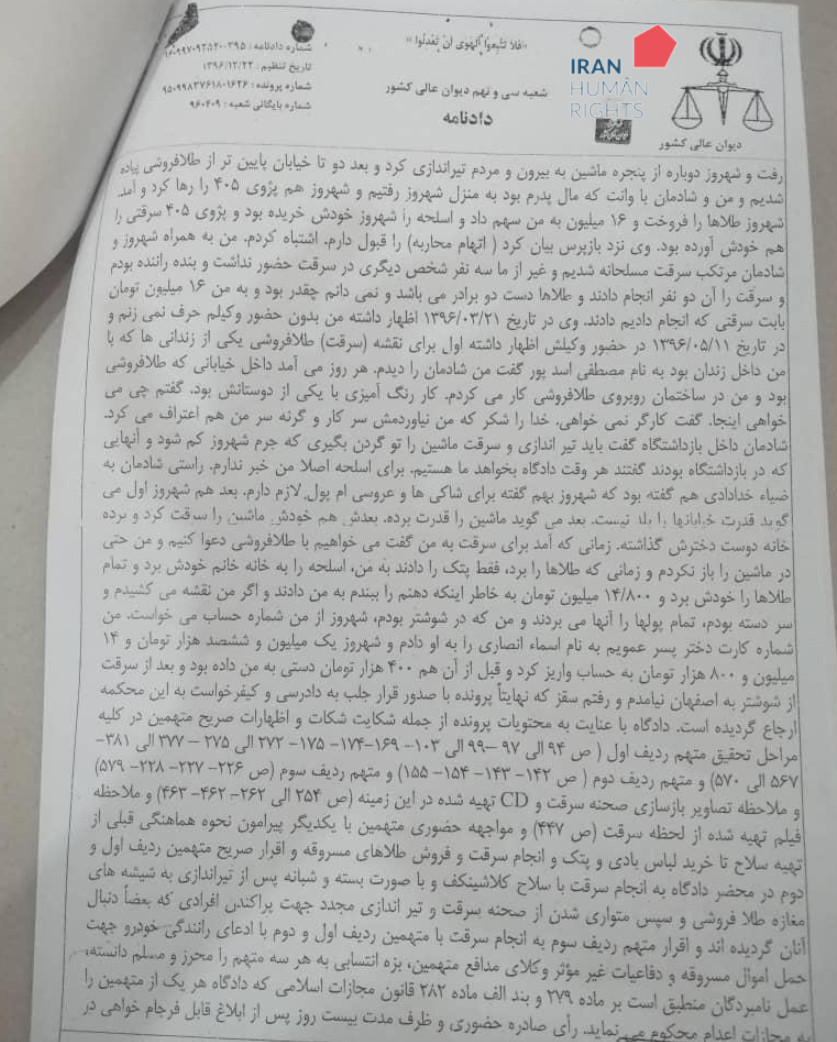 «فلا تتبعوا الهوی ان تعدلوا»
IRAN
HUMAN
RIGHTS
شماره دادنامه : ۹۶۰۹۹۷۰۹۲۵۲۰۰۳۹۵
تاریخ تنظیم : ۱۳۹۶/۱۲/۲۲
شماره پرونده : ۹۵۰۹۹۸۳۷۶۱۸۰۱۶۲۶
شماره بایگانی شعبه : ۹۶۰۴۰۹
شعبه سی و نهم دیوان عالی کشور
دادنامه
دیوان عالی کشور
رفت و شهروز دوباره از پنجره ماشین به بیرون و مردم تیراندازی کرد و بعد دو تا خیابان پایین تر از طلافروشی پیاده
شدیم و من و شادمان با وانت که مال پدرم بود به منزل شهروز رفتیم و شهروز هم پژوی ۴۰۵ را رها کرد و آمد.
شهروز طلاها را فروخت و ۱۶ میلیون به من سهم داد و اسلحه را شهروز خودش خریده بود و پژوی ۴۰۵ سرقتی را
هم خودش آورده بود. وی نزد بازپرس بیان کرد ( اتهام محاربه) را قبول دارم. اشتباه کردم. من به همراه شهروز و
شادمان مرتکب سرقت مسلحانه شدیم و غیر از ما سه نفر شخص دیگری در سرقت حضور نداشت و بنده راننده بودم
و سرقت را آن دو نفر انجام دادند و طلاها دست دو برادر می باشد و نمی دانم چقدر بود و به من ۱۶ میلیون تومان
بابت سرقتی که انجام دادیم دادند. وی در تاریخ ۱۳۹۶/۰۳/۲۱ اظهار داشته من بدون حضور وکیلم حرف نمی زنم و
در تاریخ ۱۳۹۶/۰۵/۱۱ در حضور وکیلش اظهار داشته اول برای نقشه (سرقت) طلافروشی یکی از زندانی ها که با
من داخل زندان بود به نام مصطفی اسد پور گفت من شادمان را دیدم. هر روز می آمد داخل خیابانی که طلافروشی
بود و من در ساختمان روبروی طلافروشی کار می کردم. کار رنگ آمیزی با یکی از دوستانش بود. گفتم چی می
خواهی اینجا. گفت کارگر نمی خواهی. خدا را شکر که من نیاوردمش سر کار و گرنه سر من هم اعتراف می کرد.
شادمان داخل بازداشتگاه گفت باید تیر اندازی و سرقت ماشین را تو گردن بگیری که جرم شهروز کم شود و آنهایی
که در بازداشتگاه بودند گفتند هر وقت دادگاه بخواهد ما هستیم. برای اسلحه اصلا من خبر ندارم. راستی شادمان به
ضیاء خدادادی هم گفته بود که شهروز بهم گفته برای شاکی ها و عروسی ام پول لازم دارم. بعد هم شهروز اول می
گوید قدرت خیابانها را بلد نیست. بعد می گوید ماشین را قدرت برده. بعدش هم خودش ماشین را سرقت کرد و برده
خانه دوست دخترش گذاشته. زمانی که آمد برای سرقت به من گفت می خواهیم با طلافروشی دعوا کنیم و من حتی
در ماشین را باز نکردم و زمانی که طلاها را برد، فقط پتک را دادند به من، اسلحه را به خانه خانم خودش برد و تمام
طلاها را خودش برد و ۱۴/۸۰۰ میلیون تومان به خاطر اینکه دهنم را ببندم به من دادند و اگر من نقشه می کشیدم و
سر دسته بودم، تمام پولها را آنها می بردند و من که در شوشتر بودم، شهروز از من شماره حساب می خواست. من
شماره کارت دختر پسر عمویم به نام اسماء انصاری را به او دادم و شهروز یک میلیون و ششصد هزار تومان و ۱۴
میلیون و ۸۰۰ هزار تومان به حساب واریز کرد و قبل از آن هم ۴۰۰ هزار تومان دستی به من داده بود و بعد از سرقت
از شوشتر به اصفهان نیامدم و رفتم سقز که نهایتاً پرونده با صدور قرار جلب به دادرسی و کیفرخواست به این محکمه
ارجاع گردیده است. دادگاه با عنایت به محتویات پرونده از جمله شکایت شکات و اظهارات صریح متهمین در کلیه
مراحل تحقیق متهم ردیف اول ( ص ۹۴ الی ۹۷ –۹۹ الی ۱۰۳ – ۱۶۹-۱۷۴– ۱۷۵– ۲۷۲ الی ۲۷۵ – ۳۷۷ الی ۳۸۱–
۵۶۷ الی ۵۷۰) و متهم ردیف دوم ( ص ۱۴۲– ۱۴۳– ۱۵۴– ۱۵۵) و متهم ردیف سوم (ص ۲۲۶– ۲۲۷– ۲۲۸– ۵۷۹)
و ملاحظه تصاویر بازسازی صحنه سرقت و CD تهیه شده در این زمینه (ص ۲۵۴ الی ۲۶۲– ۴۶۲– ۴۶۳) و ملاحظه
فیلم تهیه شده از لحظه سرقت (ص ۴۴۷) و مواجهه حضوری متهمین با یکدیگر پیرامون نحوه هماهنگی قبلی از
تهیه سلاح تا خرید لباس بادی و پتک و انجام سرقت و فروش طلاهای مسروقه و اقرار صریح متهمین ردیف اول و
دوم در محضر دادگاه به انجام سرقت با سلاح کلاشینکف و با صورت بسته و شبانه پس از تیراندازی به شیشه های
مغازه طلا فروشی و سپس متواری شدن از صحنه سرقت و تیر اندازی مجدد جهت پراکندن افرادی که بعضاً دنبال
آنان گردیده اند و اقرار متهم ردیف سوم به انجام سرقت با متهمین ردیف اول و دوم با ادعای رانندگی خودرو جهت
حمل اموال مسروقه و دفاعیات غیر مؤثر وکلای مدافع متهمین، بزه انتسابی به هر سه متهم را محرز و مسلم دانسته،
عمل نامبردگان منطبق است بر ماده ۲۷۹ و بند الف ماده ۲۸۲ قانون مجازات اسلامی که دادگاه هر یک از متهمین را
به مجازات اعدام محکوم می نماید. رأی صادره حضوری و ظرف مدت بیست روز پس از ابلاغ قابل فرجام خواهی در